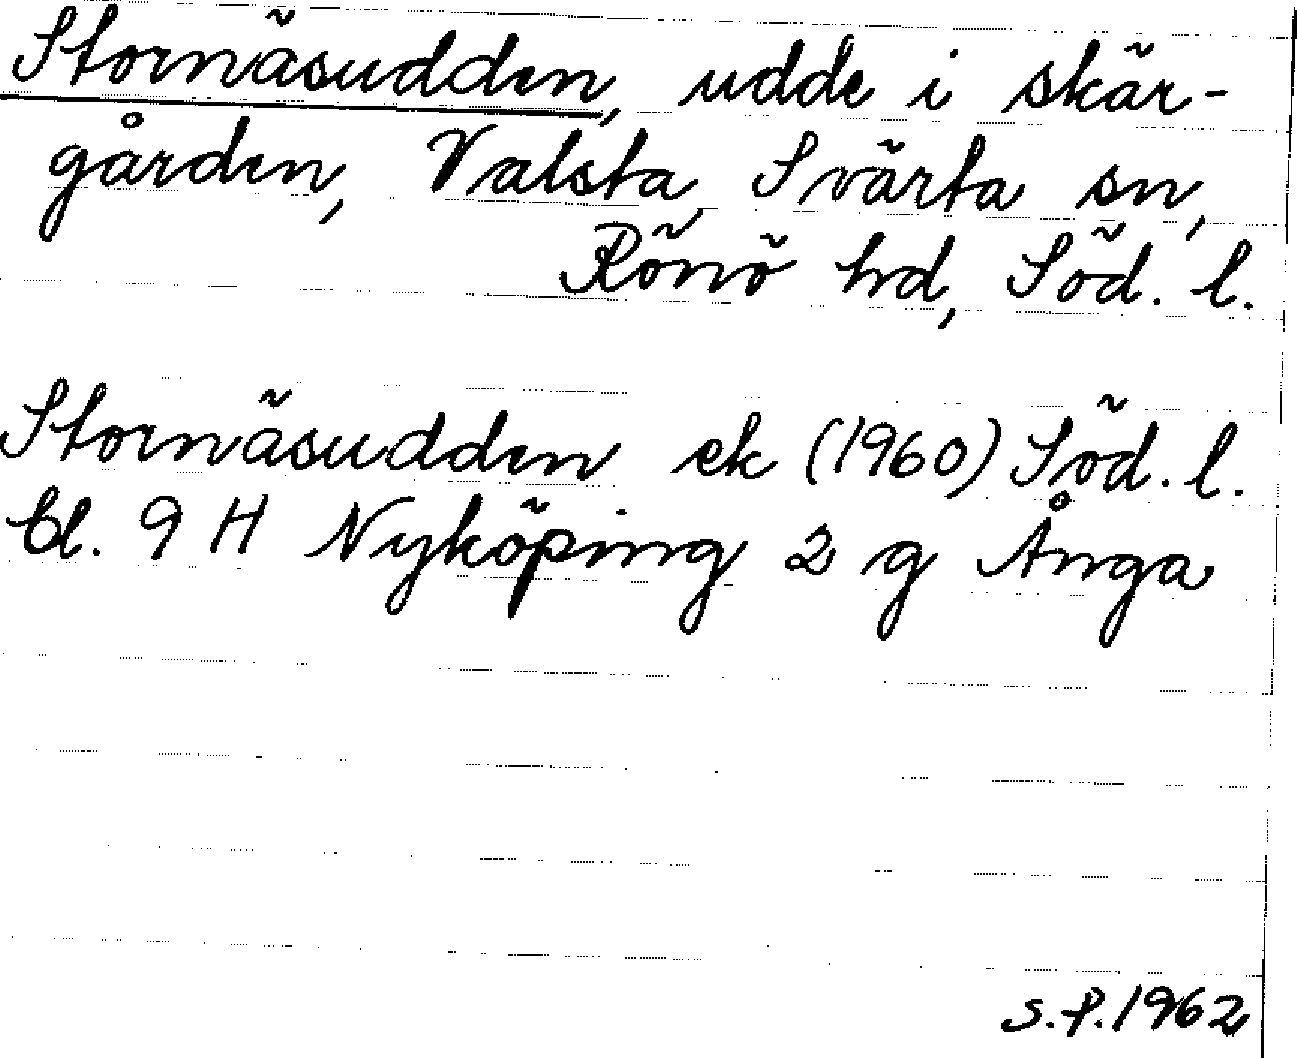 Stornäsudden, udde i skär-
gården, Valsta, Svärta sn,
Rönö hd, Söd. l.
Stornäsudden ek (1960) Söd. l.
bl. 9 H Nyköping 2 g Ånga
S.P. 1962